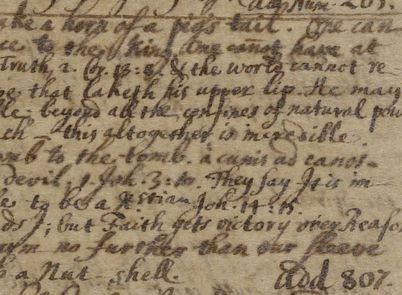 Aug Hom 261.
make a horn of a pigs tail. One can
ce to the King. One canot have at
Truth 2. Cor. 13: 8. & the world cannot re
he that laketh his upper lip. He may
ble: beyond all the confines of natural pow
ch - this altogether is incredible
omb to the tomb. a cunis ad canos-
devil, 1. Joh. 3: 10 They say It is im-
e to be a Xstian Joh. 14: 15.
ds J; but Faith gets victory over Reason
arm no further than our sleeve
e a Nut-shell. add 807.